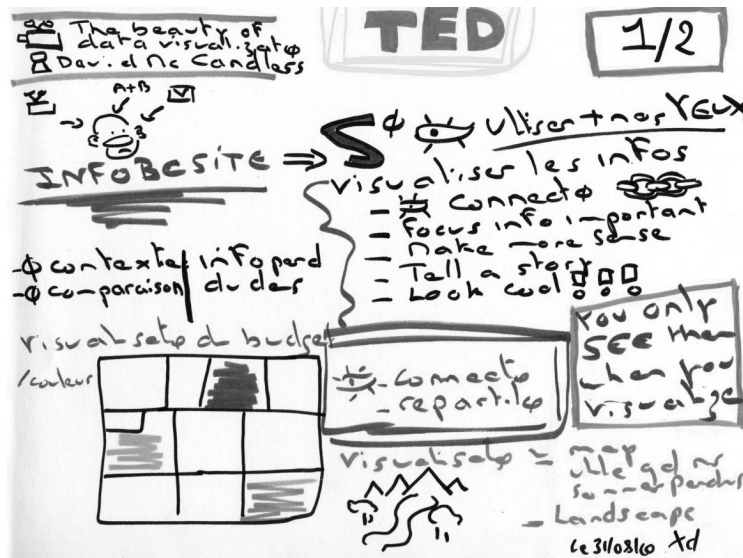 The beauty of
data visualizatφ
David Mc Candless
TED
1/2
A+B
INFOBESITE
⇒ Sφ utiliser + nos YEUX
visualiser les infos
- connectφ
- Focus info important
- Make more sense
- Tell a story
- Look cool !!!
- φ contexte
- φ comparaison
info perd
du des
visualisatφ d budget
/couleur
- connectφ
- repartitφ
You only
SEE them
when you
visualize
visualisatφ = map
utile qd ns
sommes perdus
- Landscape
Le 31/08/10 Xd